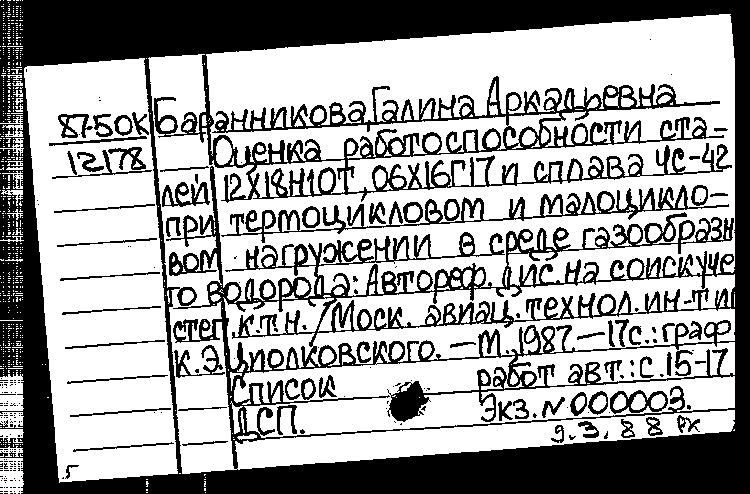 87-50К Баранникова, Галина Аркадьевна
12178 Оценка работоспособности ста-
лей 12Х18Н10Т, 06Х16Г17 и сплава ЧС-42
при термоцикловом и малоцикло-
вом нагружении в среде газообразн
го водорода: Автореф. дис. на соиск. уче
степ. к.т.н. / Моск. авиац. технол. ин-т и
К.Э. Циолковского. — М., 1987. — 17с.: граф.
Список работ авт.: с. 15-17.
ДСП. Экз. N 000003.
9.3.88
5